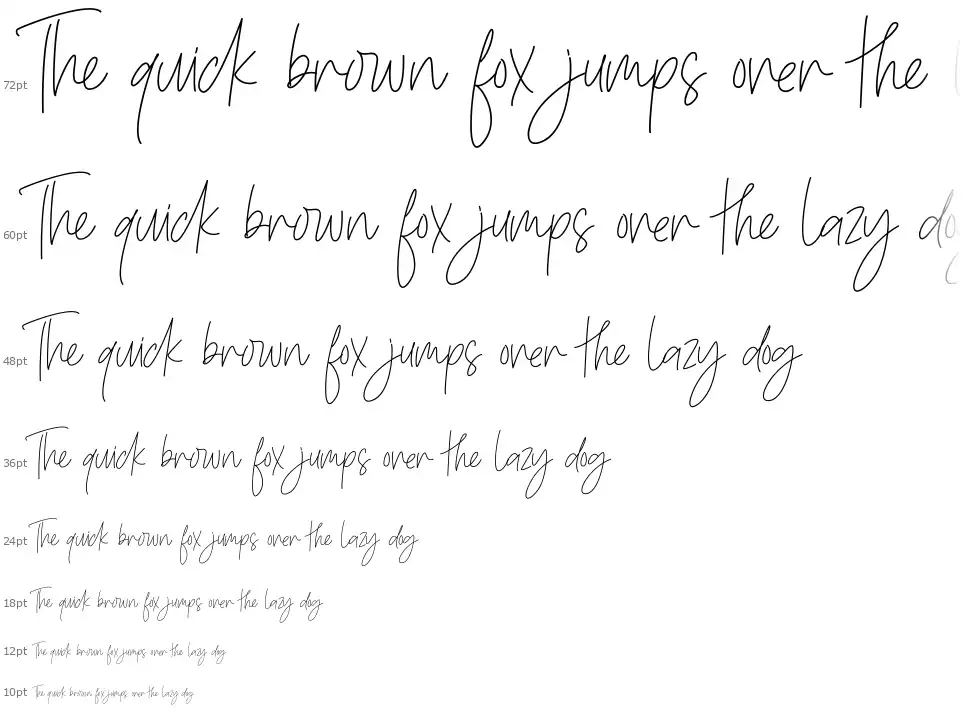 72pt The quick brown fox jumps over the
60pt The quick brown fox jumps over the lazy do
48pt The quick brown fox jumps over the lazy dog
36pt The quick brown fox jumps over the lazy dog
24pt The quick brown fox jumps over the lazy dog
18pt The quick brown fox jumps over the lazy dog
12pt The quick brown fox jumps over the lazy dog
10pt The quick brown fox jumps over the lazy dog